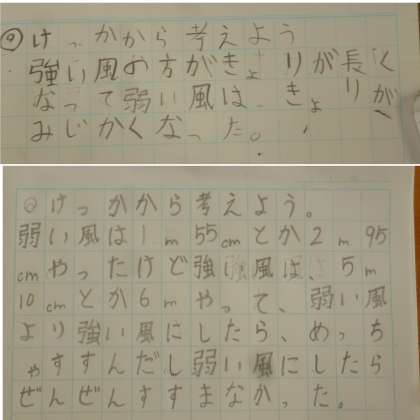 ◎けっかから考えよう
強い風の方がきょりが長く
なって弱い風は、きょりが
みじかくなった。
◎けっかから考えよう。
弱い風は1m55cmとか2m95
cmやったけど強い風は、5m
10cmとか6mやって、弱い風
より強い風にしたら、めっち
ゃすすんだし弱い風にしたら
ぜんぜんすすまなかった。